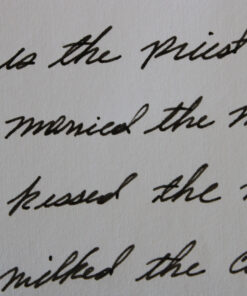 is the priest
married the
kissed the
milked the